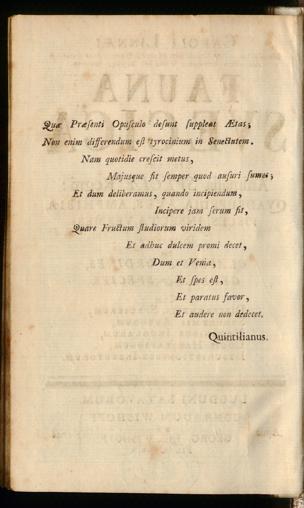 Quæ Præsenti Opusculo desunt suppleat Ætas;
Non enim differendum est tyrocinium in Senectutem.
Nam quotidie crescit metus,
Majusque fit semper quod ausuri sumus;
Et dum deliberamus, quando incipiendum,
Incipere jam serum fit,
Quare Fructum studiorum viridem
Et adhuc dulcem promi decet,
Dum et Venia,
Et spes est,
Et paratus favor,
Et audere non dedecet.
Quintilianus.